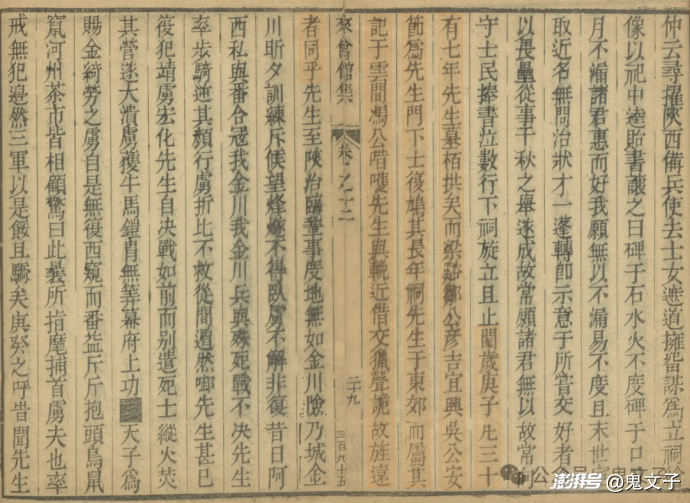 仲云尋擢陝西備兵使去士女遮道擁畱請為立祠
像以祀中途貽書讓之曰碑于石水火不度碑于口
月不漏諸君惠而好我願無以不漏易不度且末世
取近名無問治狀才一蓬轉卽示意于所嘗交好者
以畏壘從事千秋之舉遂成故常願諸君無以故常
守士民捧書泣數行下祠旋立且止閱歲庚子凡三十
有七年先生墓栢拱矣而梁谿鄒公彥吉宜興吳公安
節為先生門下士後鳩其長年祠先生于東郊而屬其
記于雲間馮公嘆先生與輓近借交獵聲詭故旌遠
來禽館集 卷之十二 二十九 三百九十五
者同乎先生至陝治臨鞏事度地無如金川險乃城金
川昕夕訓練斥候望烽燧不得臥虜不解非復昔日阿
西私與番合冦我金川我金川兵與殊死戰不決先生
率步騎迎其顏行虜折比不救從間遁然啣先生甚已
復犯靖虜宏化先生自決戰如前而別遣死士縱火焚
其營遂大潰虜獲牛馬鎧冑無筭幕府上功天子為
賜金綺勞之虜自是無復西窺而番益斤斤抱頭鳥鼠
竄河州茶市皆相顧驚曰此曩所指麾捕首虜夫也率
戒無犯邊然三軍以是餒且驕矣庚癸之呼昔聞先生
澎湃号@鬼文子